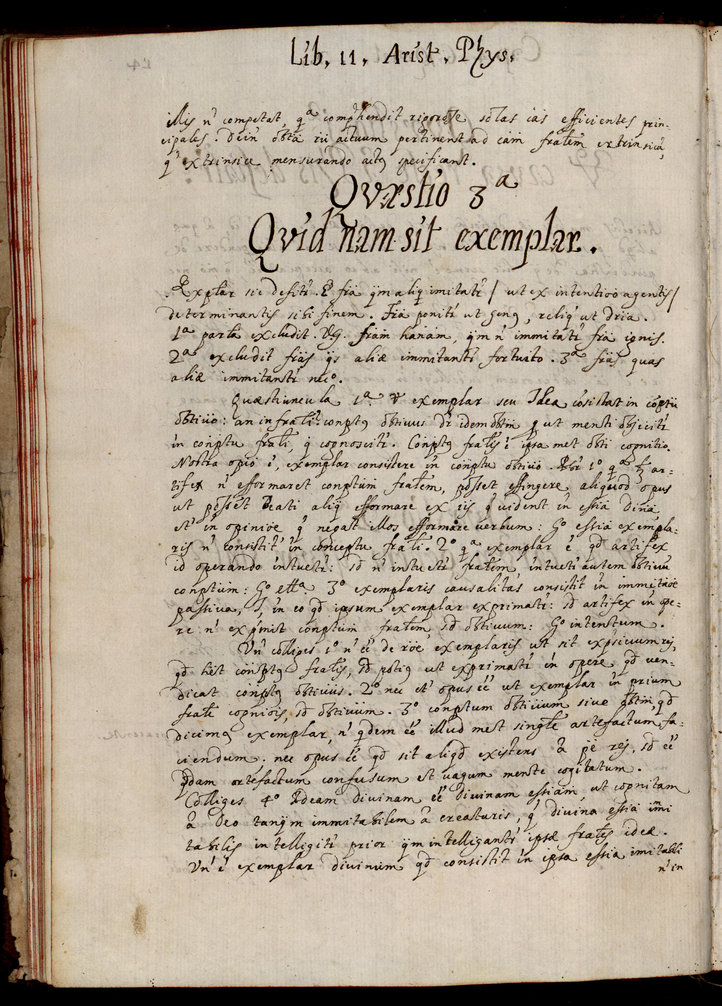 Lib. 11. Arist. Phys.
illis n' competat, qa comp'hendit rigorose solas cãs efficientes prin-
cipales. Dein obta rũ actuum pertinent ad cãm fralem extrinsicã,
q' extrinsice mensurando actq specificant.
Qvæstio 3a
Qvid nam sit exemplar.
Exp̃lar sic defitr. E' fra qm aliq imitatr / ut ex intentioõ agentis /
determinantis sibi finem. Fra ponitr ut genq, reliq' ut dria.
1a parta excludit. V.G. fram hanam, qm n' immitatr fra ignis.
2a excludit fras qs aliæ immitantr fortuito. 3a fras quas
aliæ immitantr neco.
Quæstiuncula 1a V exemplar seu Idea cosistat in cõptu
obtiuo: an in frali? conptq obtiuus dr idem obtm p ut menti objicitr
in conptu frali, q' cognoscitr. Conptq fralis e' ipsa met obti cognitio.
Nostra opio e', exemplar consistere in conptu obtiuo. Pbr 1o qa si ar-
tifex n' efformaret conptum fralem, posset effingere aliquod opus
ut posset Beati aliq' efformare ex iis q' vident in essia diña
et' in opinioe q' negat illos efformare verbum: Go essia exempla-
ris n' consistit in conceptu frali. 2o qa exemplar e' qd artifex
in operando intuetr: sd n' intuetr fralem intuetr autem obtiuũ
conptum: Go etta. 3o exemplaris causalitas consistit in immitaoe
passiua, l, in eo qd ipsum exemplar exprimatr: sd artifex in ope-
re n' exp'mit conptum fralem, sd obtiuum: Go intentum.
Vn' colliges 1o n' ee' de roe exemplaris ut sit expsiuum rej,
qd hẽt conptq fralis, sd potiq ut exprimatr in opere qd ven-
dicat conptq obtiuus. 2o nec et' opus ee' ut exemplar in prium
frale cognios, sd obtiuum. 3o conptum obtiuum siue obtm, qd
dicimq exemplar, n' qdem ee' illud met singlẽ artefactum fa-
ciendum. nec opus ee' qd sit aliqd existens â pẽ rej, sd ee'
qdam artefactum confusum et vagum mente cogitatum.
Colliges 4o Ideam diuinam ee' diuinam essiam ut cognitam
â Deo tanqm immitabilem â creaturis, q' diuina essia imi
tabilis intelligitr prior qm intelligantr ipsæ frales ideæ.
Vn' e' exemplar diuinum qd consistit in ipsa essia imitabli
n' in